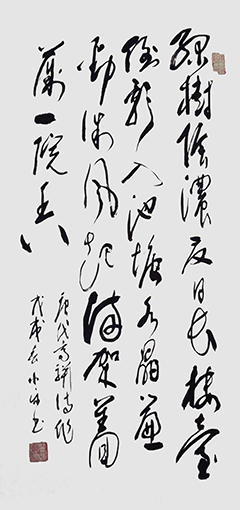 綠樹陰濃夏日长樓臺
倒影入池塘水晶簾
動微風起滿架薔
薇一院香
唐代高駢詩
戊戌